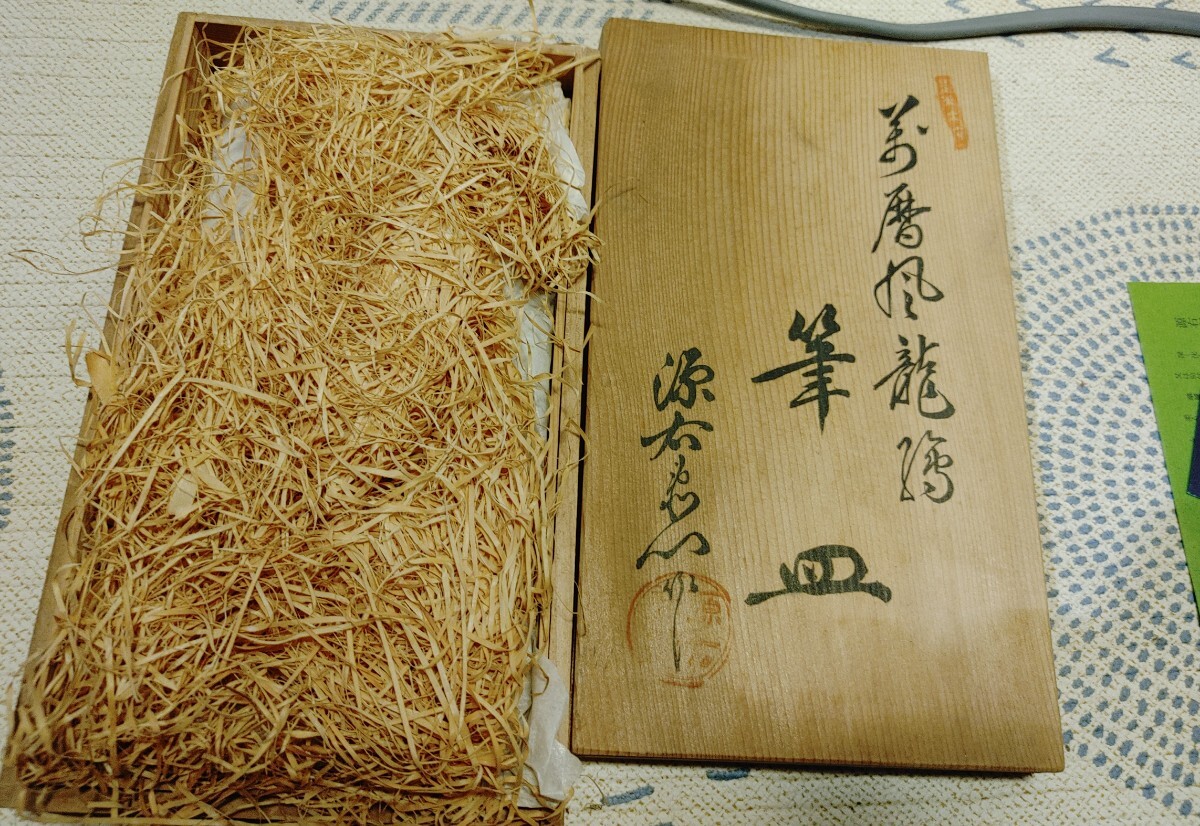 萬暦風龍絵
筆皿
源右衛門作